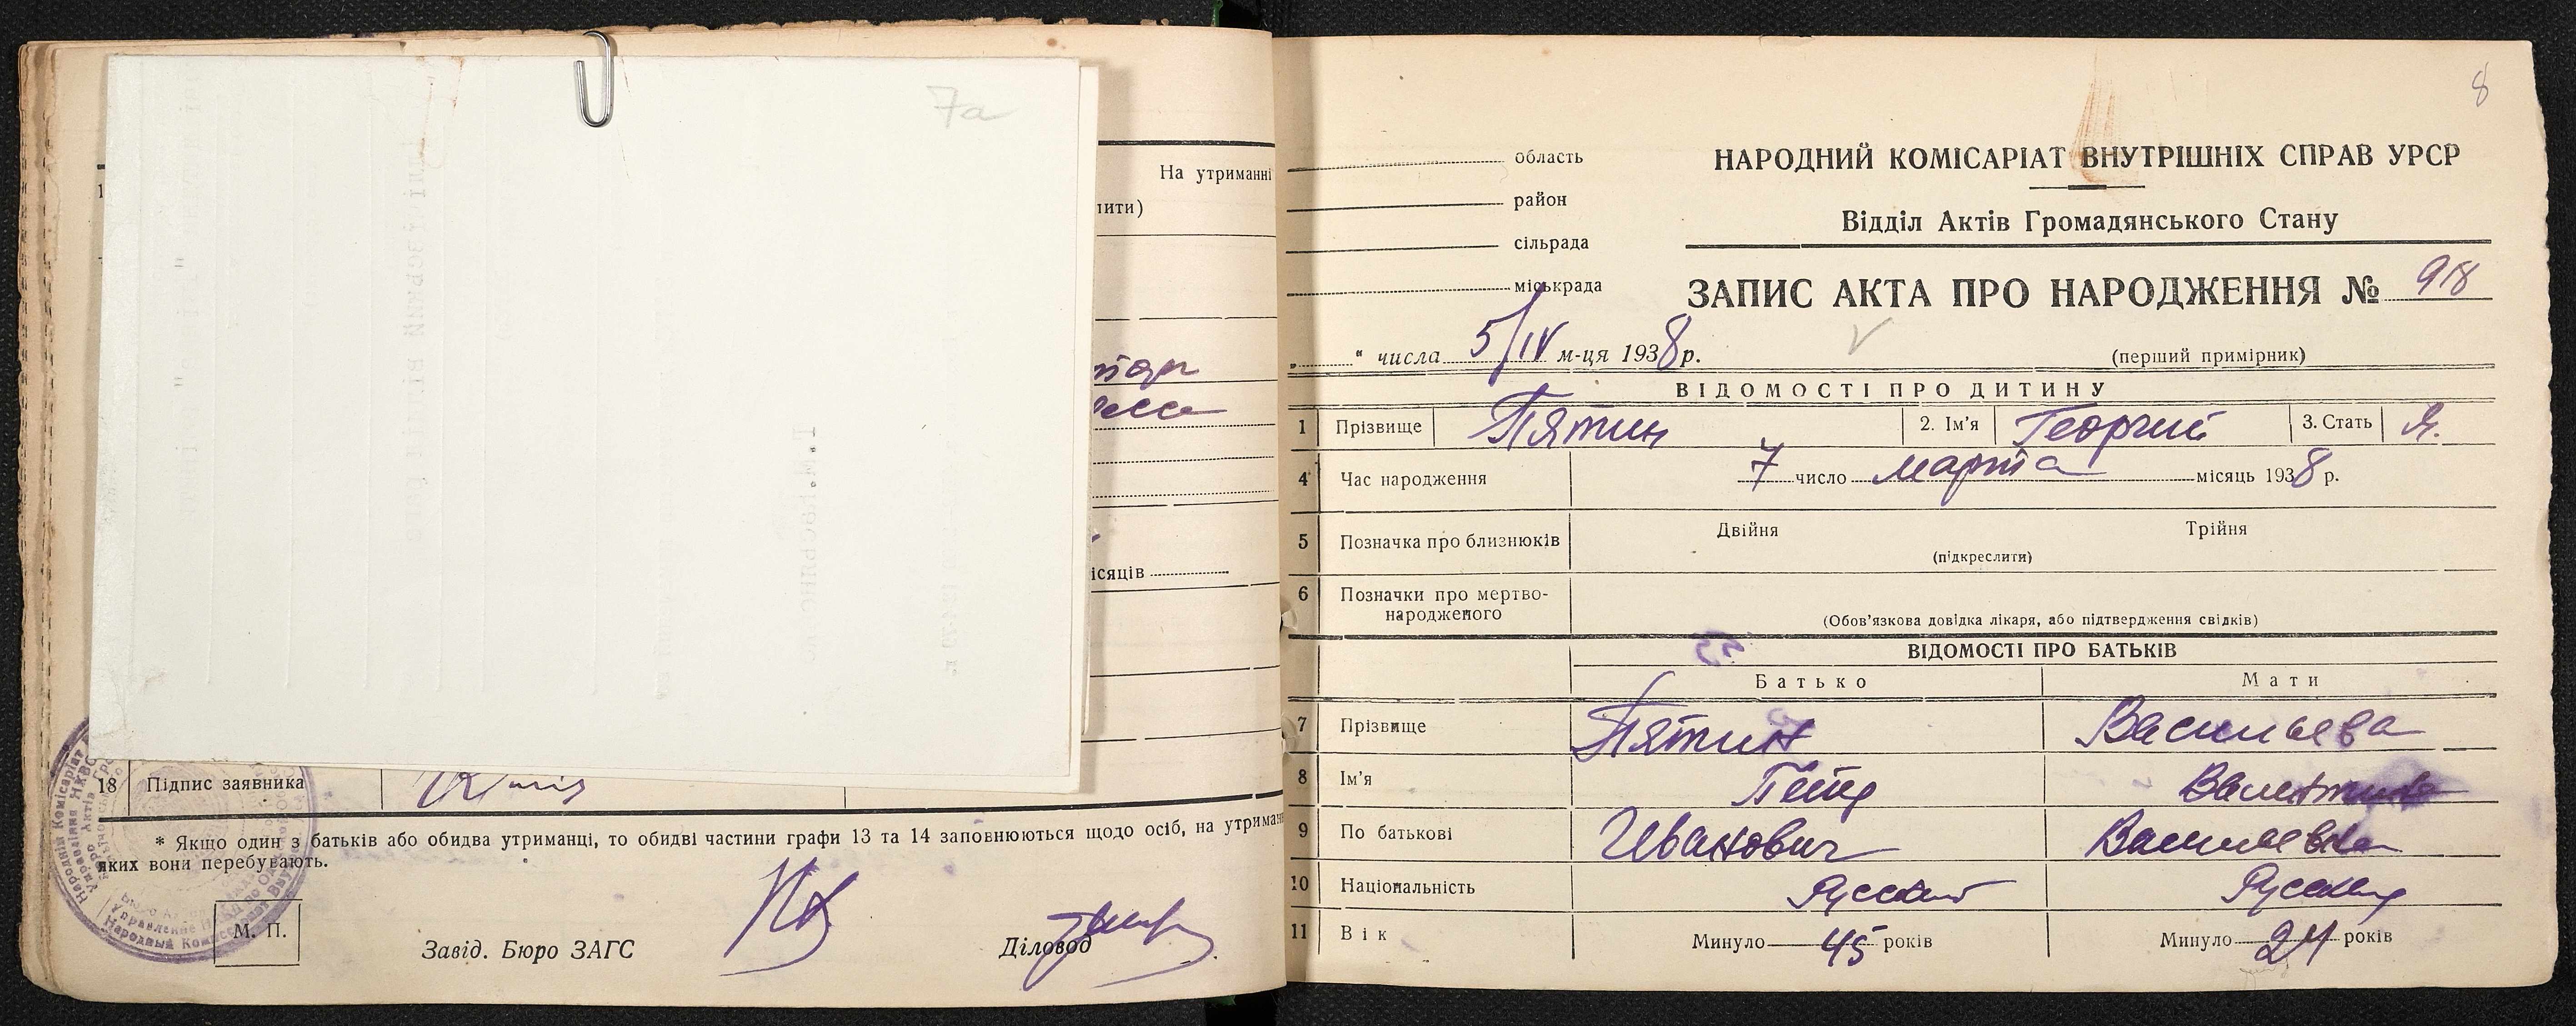 7а
На утриманні
ити)
ісяців
18 Підпис заявника
* Якщо один з батьків або обидва утриманці, то обидві частини графи 13 та 14 заповнюються щодо осіб, на утриман
яких вони перебувають.
М. П.
Завід. Бюро ЗАГС
Діловод
8
область
район
сільрада
міськрада
НАРОДНИЙ КОМІСАРІАТ ВНУТРІШНІХ СПРАВ УРСР
Відділ Актів Громадянського Стану
ЗАПИС АКТА ПРО НАРОДЖЕННЯ № 918
„ “ числа 5/IV м-ця 1938 р.
(перший примірник)
ВІДОМОСТІ ПРО ДИТИНУ
1 Прізвище Пятин 2. Ім'я Георгий 3. Стать
4 Час народження 7 число марта місяць 1938 р.
5 Позначка про близнюків Двійня Трійня
(підкреслити)
6 Позначки про мертво-
народженого
(Обов'язкова довідка лікаря, або підтвердження свідків)
ВІДОМОСТІ ПРО БАТЬКІВ
Батько Мати
7 Прізвище Пятин Васильева
8 Ім'я Петр Валентина
9 По батькові Иванович Васильевна
10 Національність Русский Русская
11 Вік Минуло 45 років Минуло 24 років